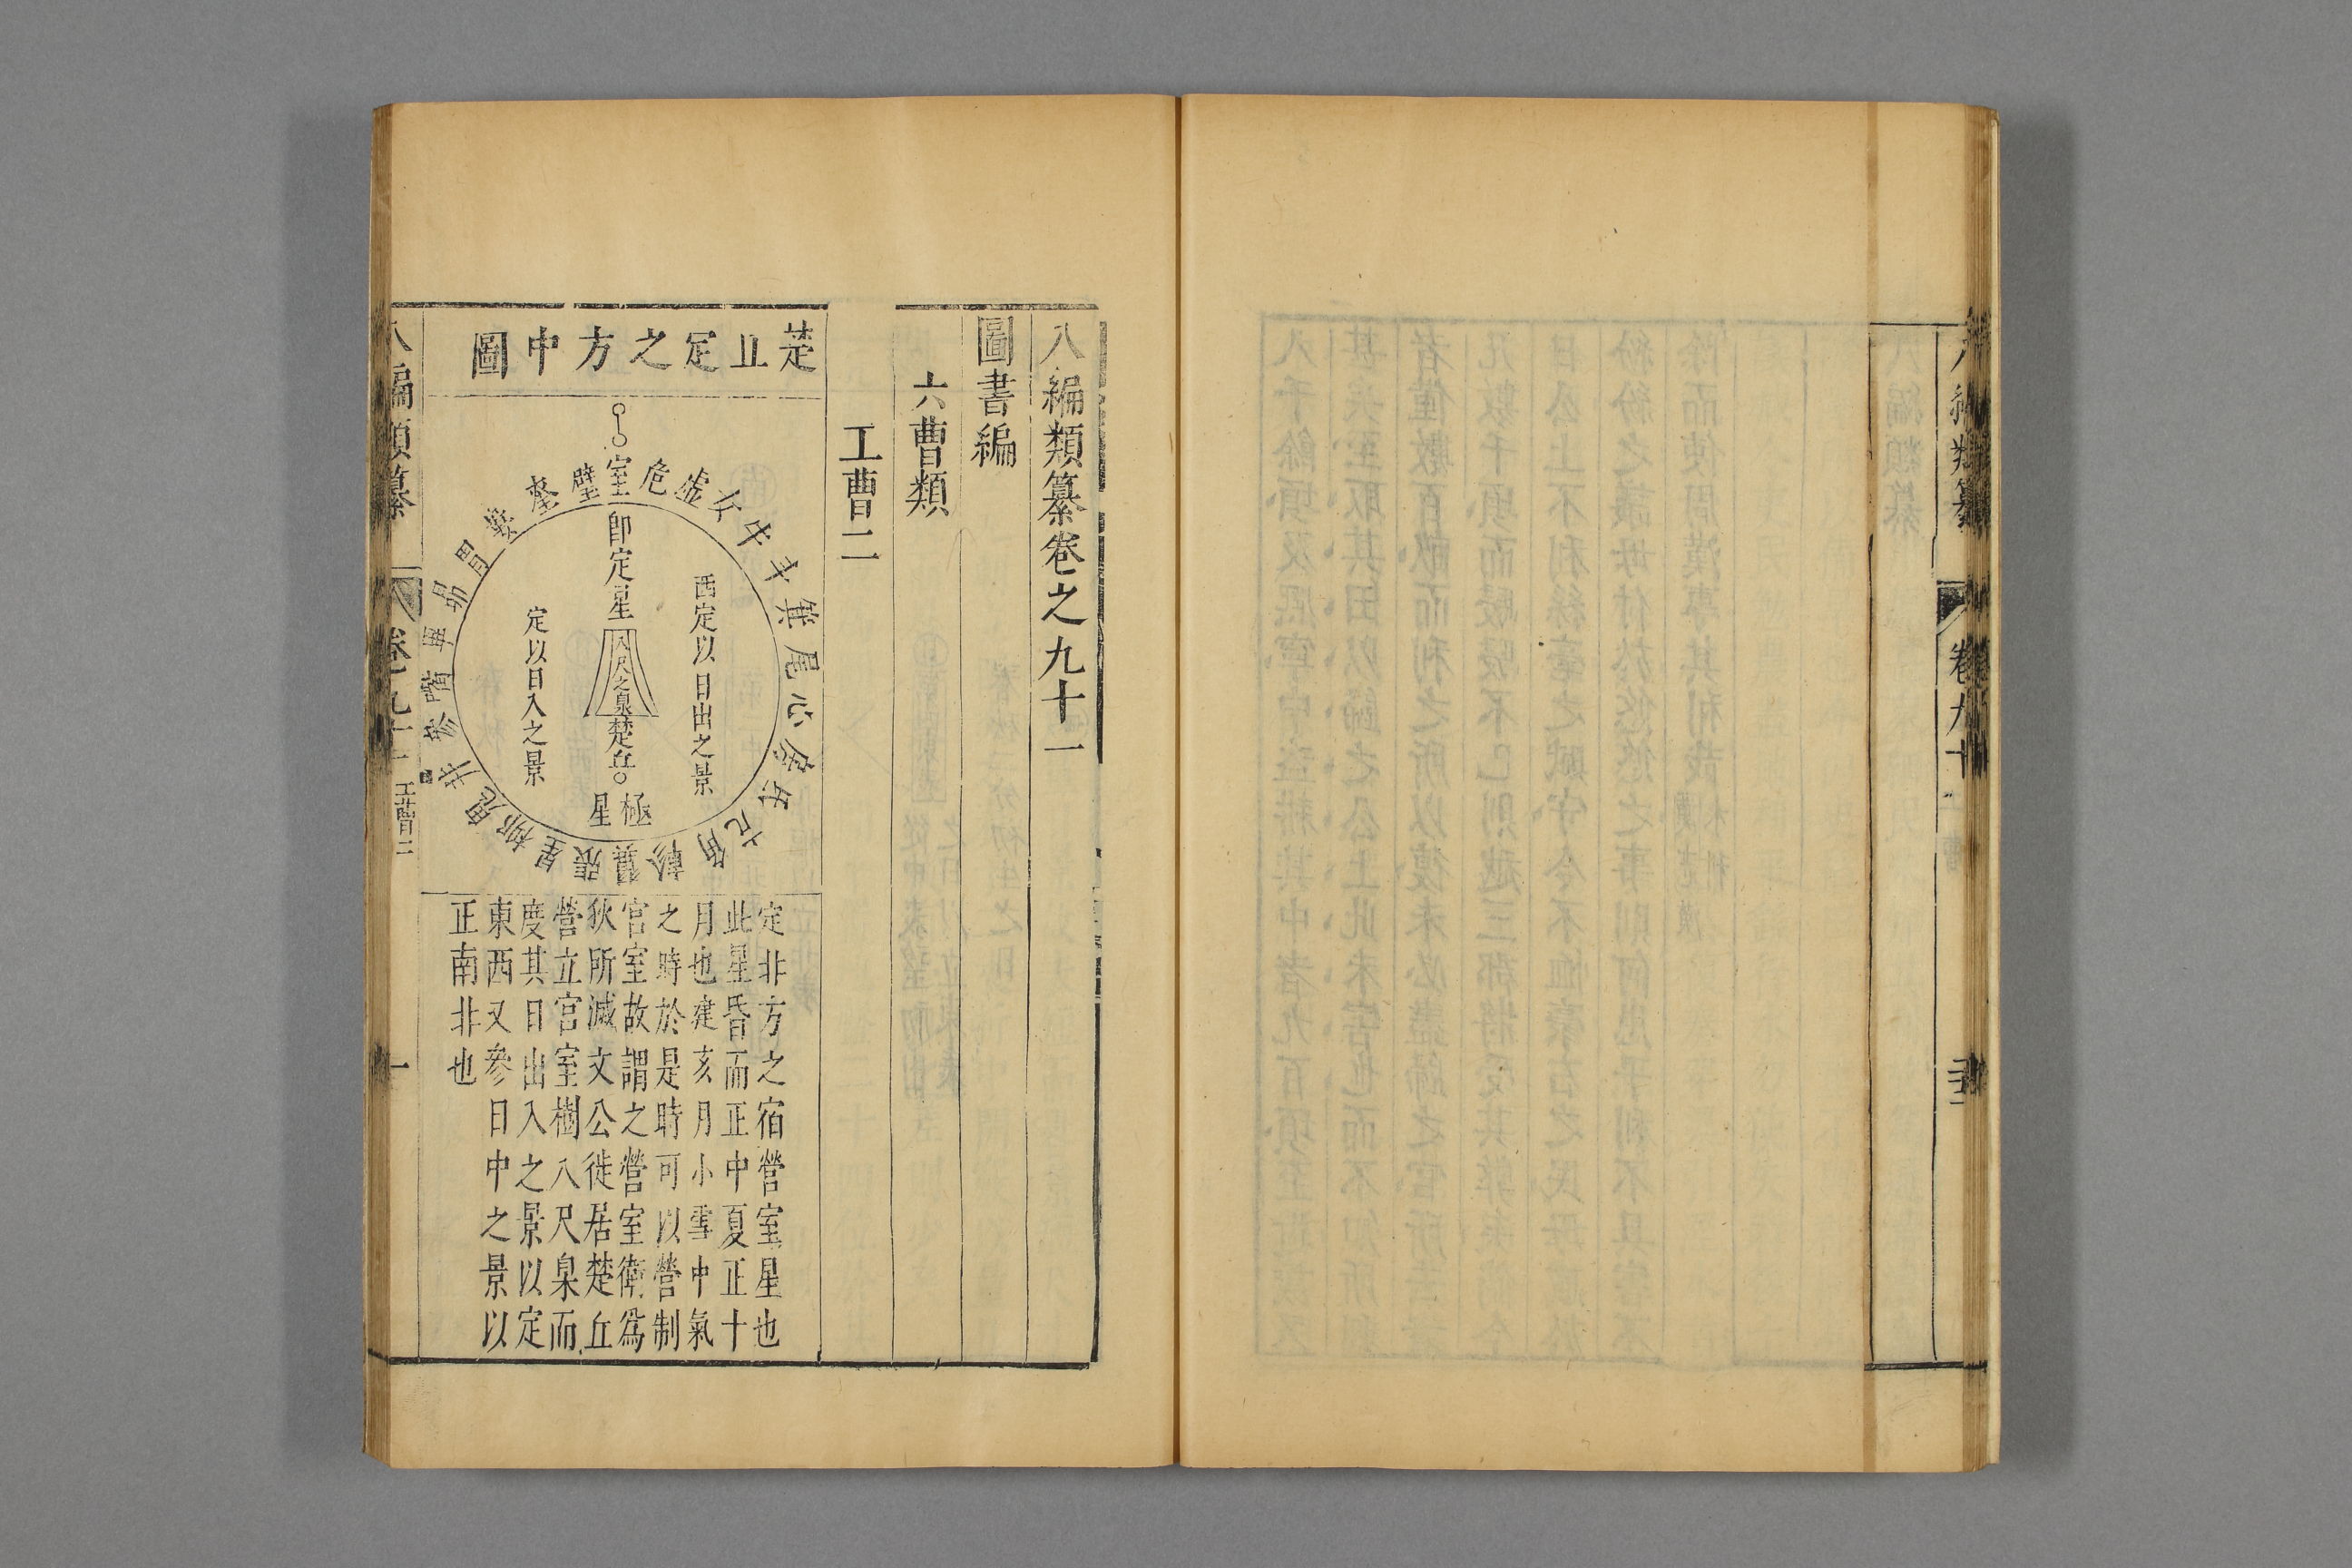 八編類纂
卷九十
八編類纂卷之九十一
圖書編
六曹類
工曹二
楚丘定之方中圖
室危虛女牛斗箕尾心房氐亢角軫翼張星柳鬼井參觜畢昴胃婁奎壁
即定星
八尺之臬
楚丘
極星
西定以日出之景
定以日入之景
定非方之宿營室星也
此星昏而正中夏正十
月也建亥月小雪中氣
之時於是時可以營制
宮室故謂之營室衛爲
狄所滅文公徙居楚丘
營立宮室樹八尺臬而
度其日出入之景以定
東西又參日中之景以
正南非也
八編類纂
卷九十一
工曹二
一